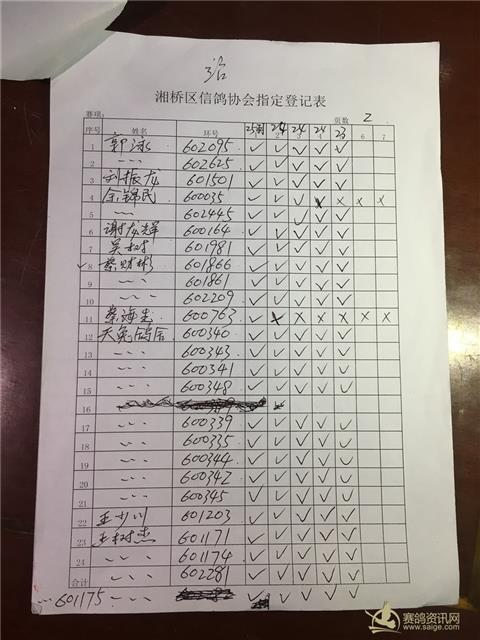 湘桥区信鸽协会指定登记表
赛项: 页数 2
序号 姓名 环号 25羽 24 24 24 23
1 2 3 4 5 6 7
1 郭泳 602095 ✓ ✓ ✓ ✓ ✓
2 〃 602625 ✓ ✓ ✓ ✓ ✓
3 刘振龙 601501 ✓ ✓ ✓ ✓ ✓
4 余锦民 60035 ✓ ✓ ✓ x x x x
5 〃 602445 ✓ ✓ ✓ ✓ ✓
6 谢龙辉 600164 ✓ ✓ ✓ ✓ ✓
7 吴树 601981 ✓ ✓ ✓ ✓ ✓
✓ 8 蔡财彬 601866 ✓ ✓ ✓ ✓ ✓
9 〃 601861 ✓ ✓ ✓ ✓ ✓
10 〃 602209 ✓ ✓ ✓ ✓ ✓
11 蔡海生 600763 ✓ x x x x x x
12 天兔鸽舍 600340 ✓ ✓ ✓ ✓ ✓
13 〃 600343 ✓ ✓ ✓ ✓ ✓
14 〃 600341 ✓ ✓ ✓ ✓ ✓
15 〃 600348 ✓ ✓ ✓ ✓ ✓
16
17 〃 600339 ✓ ✓ ✓ ✓ ✓
18 〃 600335 ✓ ✓ ✓ ✓ ✓
19 〃 600344 ✓ ✓ ✓ ✓ ✓
20 〃 600342 ✓ ✓ ✓ ✓ ✓
21 〃 600345 ✓ ✓ ✓ ✓ ✓
22 王少川 601203 ✓ ✓ ✓ ✓ ✓
23 王树杰 601171 ✓ ✓ ✓ ✓ ✓
24 〃 601174 ✓ ✓ ✓ ✓ ✓
合计 〃 602281 ✓ ✓ ✓ ✓ ✓
601175 〃 ✓ ✓ ✓ ✓
赛鸽资讯网
www.saige.com